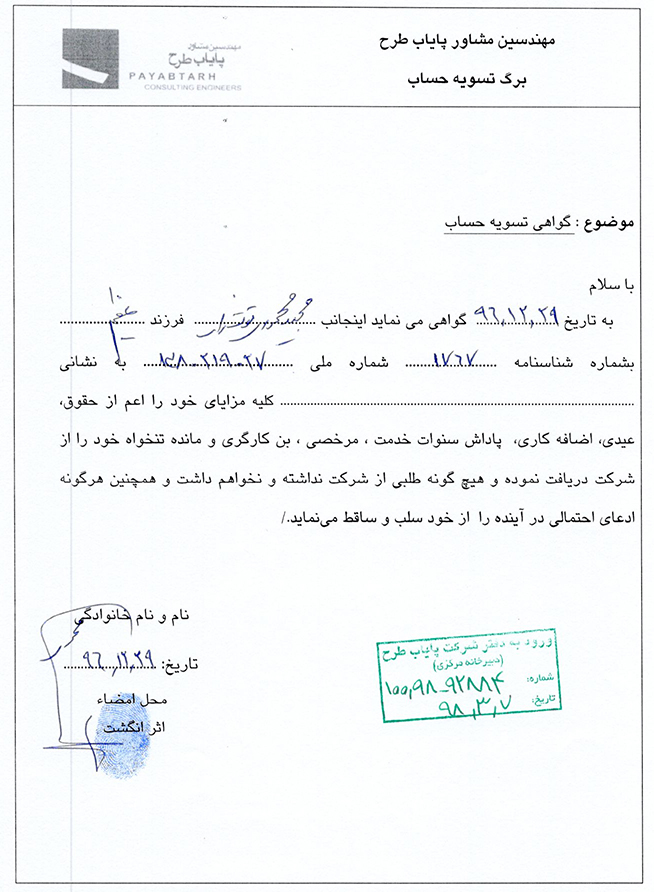 مهندسین مشاور پایاب طرح
برگ تسویه حساب
مهندسین مشاور
پایاب طرح
PAYABTARH
CONSULTING ENGINEERS
موضوع : گواهی تسویه حساب
با سلام
به تاریخ ۹۶,۱۲,۲۹ گواهی می نماید اینجانب مجید محمدی فرزند
بشماره شناسنامه ۱۷۶۷ شماره ملی به نشانی
کلیه مزایای خود را اعم از حقوق،
عیدی، اضافه کاری، پاداش سنوات خدمت ، مرخصی ، بن کارگری و مانده تنخواه خود را از
شرکت دریافت نموده و هیچ گونه طلبی از شرکت نداشته و نخواهم داشت و همچنین هرگونه
ادعای احتمالی در آینده را از خود سلب و ساقط می‌نماید./
نام و نام خانوادگی
تاریخ: ۹۶,۱۲,۲۹
محل امضاء
اثر انگشت
ورود به دفتر شرکت پایاب طرح
(دبیرخانه مرکزی)
شماره: ۱۰۰,۹۸-۹۲۸۸۴
تاریخ: ۹۸,۳,۷